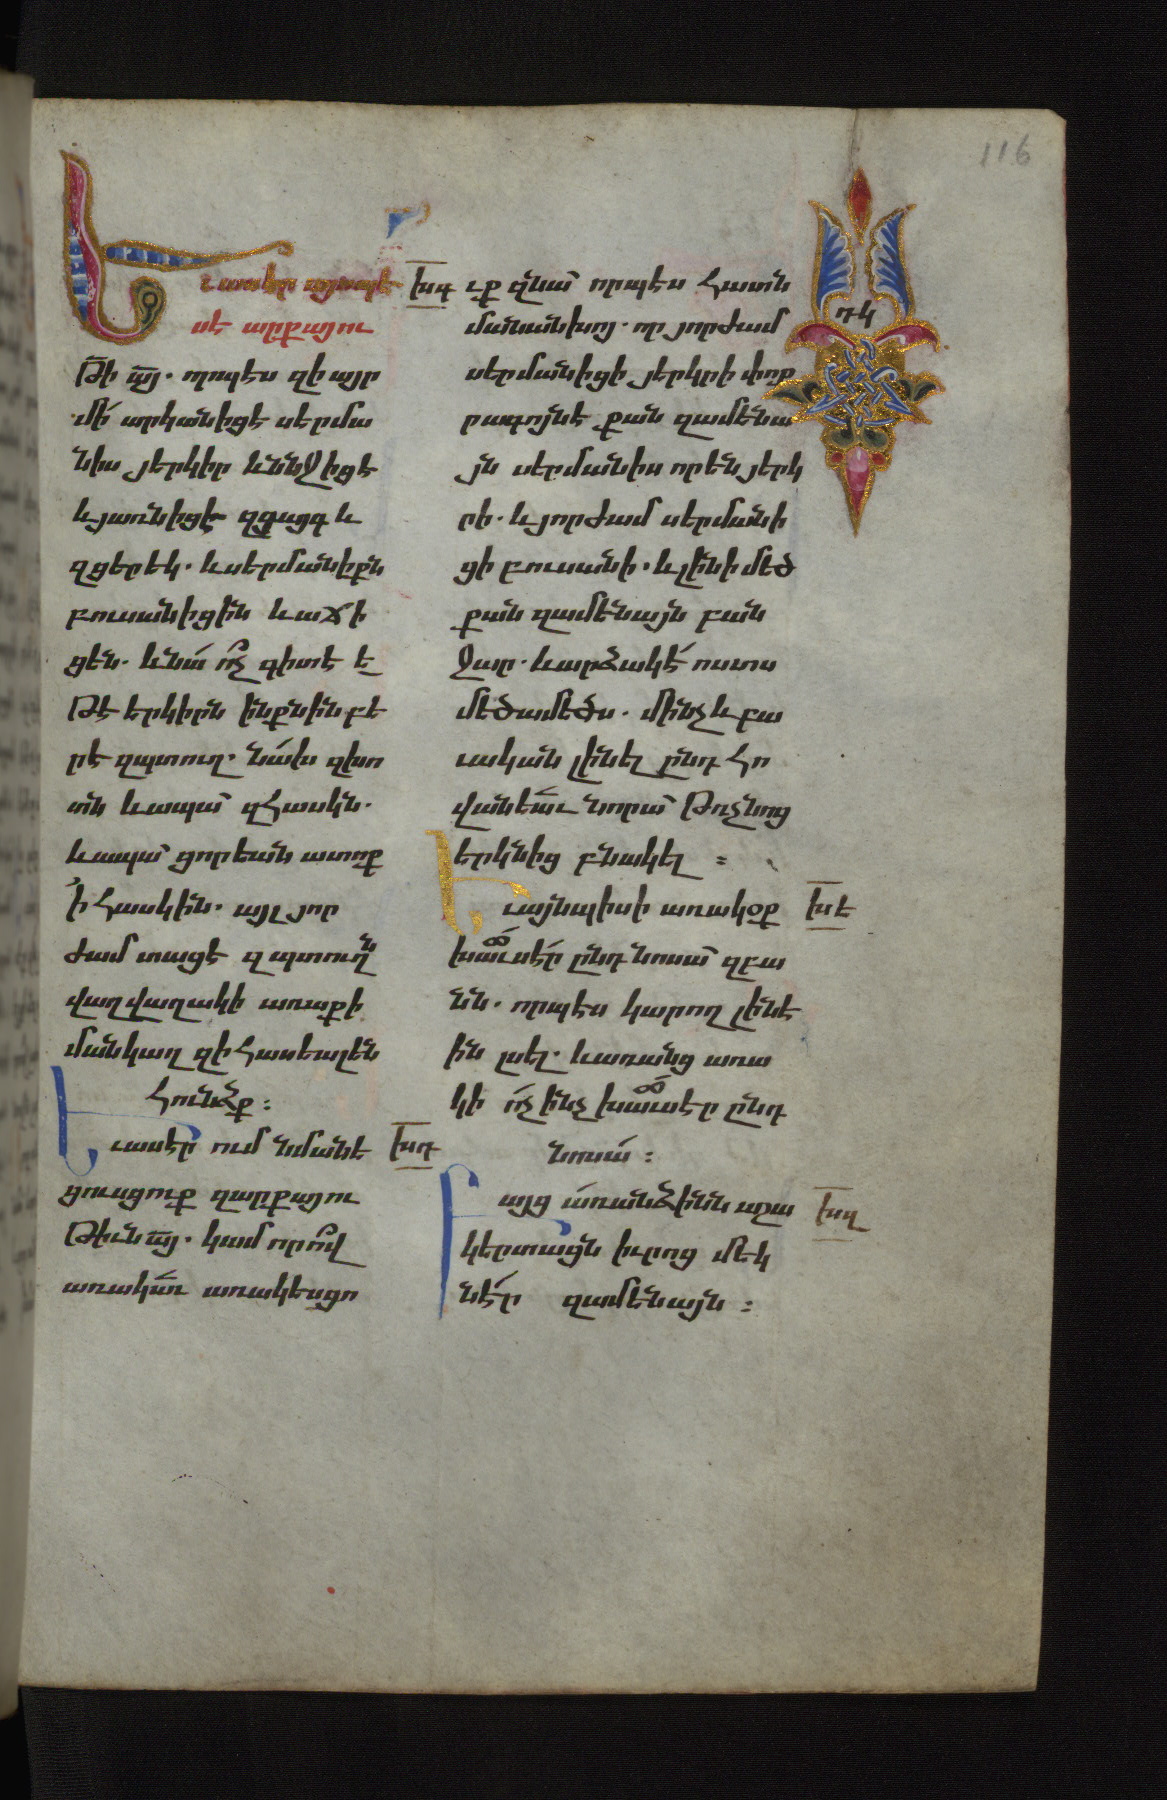 116
Եւ ասէր այսպէ
ս է արքայու
թի ա՟յ. որպէս զի այր
մի արկանիցէ սերմա
նիս յերկիր և ննջիցէ
և յառնիցէ զցայգ և
զցերեկ. և սերմանիքն
բուսանիցին և աճի
ցեն. և նա ո՛չ գիտէ ե
թէ երկիրն ինքնին բե
րէ զպտուղ. նախ զխո
տն և ապա զհասկն.
և ապա ցորեան ատոք
ի հասկին. այլ յոր
ժամ տացէ զպտուղն
վաղվաղակի առաքի
մանկաղ զի հասեալ են
հունձք :
Եւ ասէր ում նմանե խդ
ցուսցուք զարքայու
թիւն ա՟յ. կամ որո՞վ
առակաւ առակեսցո
խգ ւք զնա՝ որպէս հատն
մանանխոյ. որ յորժամ
սերմանիցի յերկրի փոք
րագոյն է քան զամենա
յն սերմանիս որ են յերկ
րի. և յորժամ սերմանի
ցի բուսանի. և լինի մեծ
քան զամենայն բան
ջար. և արձակէ ոստս
մեծամեծս. մինչև բա
ւական լինել ընդ հո
վանեաւ նորա՝ թռչնոց
երկնից բնակել :
Եւ այնպիսի առակօք խե
խաւսէր ընդ նոսա՝ զբա
նն. որպէս կարող լինէ
ին լսել. և առանց առա
կի ո՛չ ինչ խաւսէր ընդ
նոսա :
Բայց առանձինն աշա խզ
կերտացն իւրոց մեկ
նէր զամենայն :
դկ